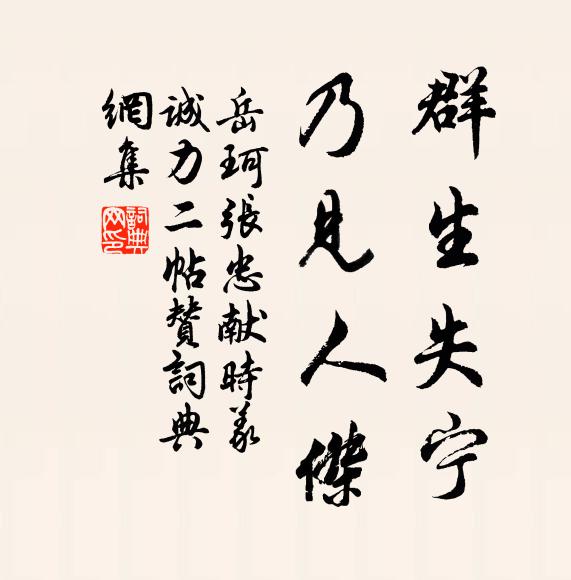 群生失宁
乃見人傑
岳珂張忠献時义
诚力二帖贊詞典
網集
詞典
网印